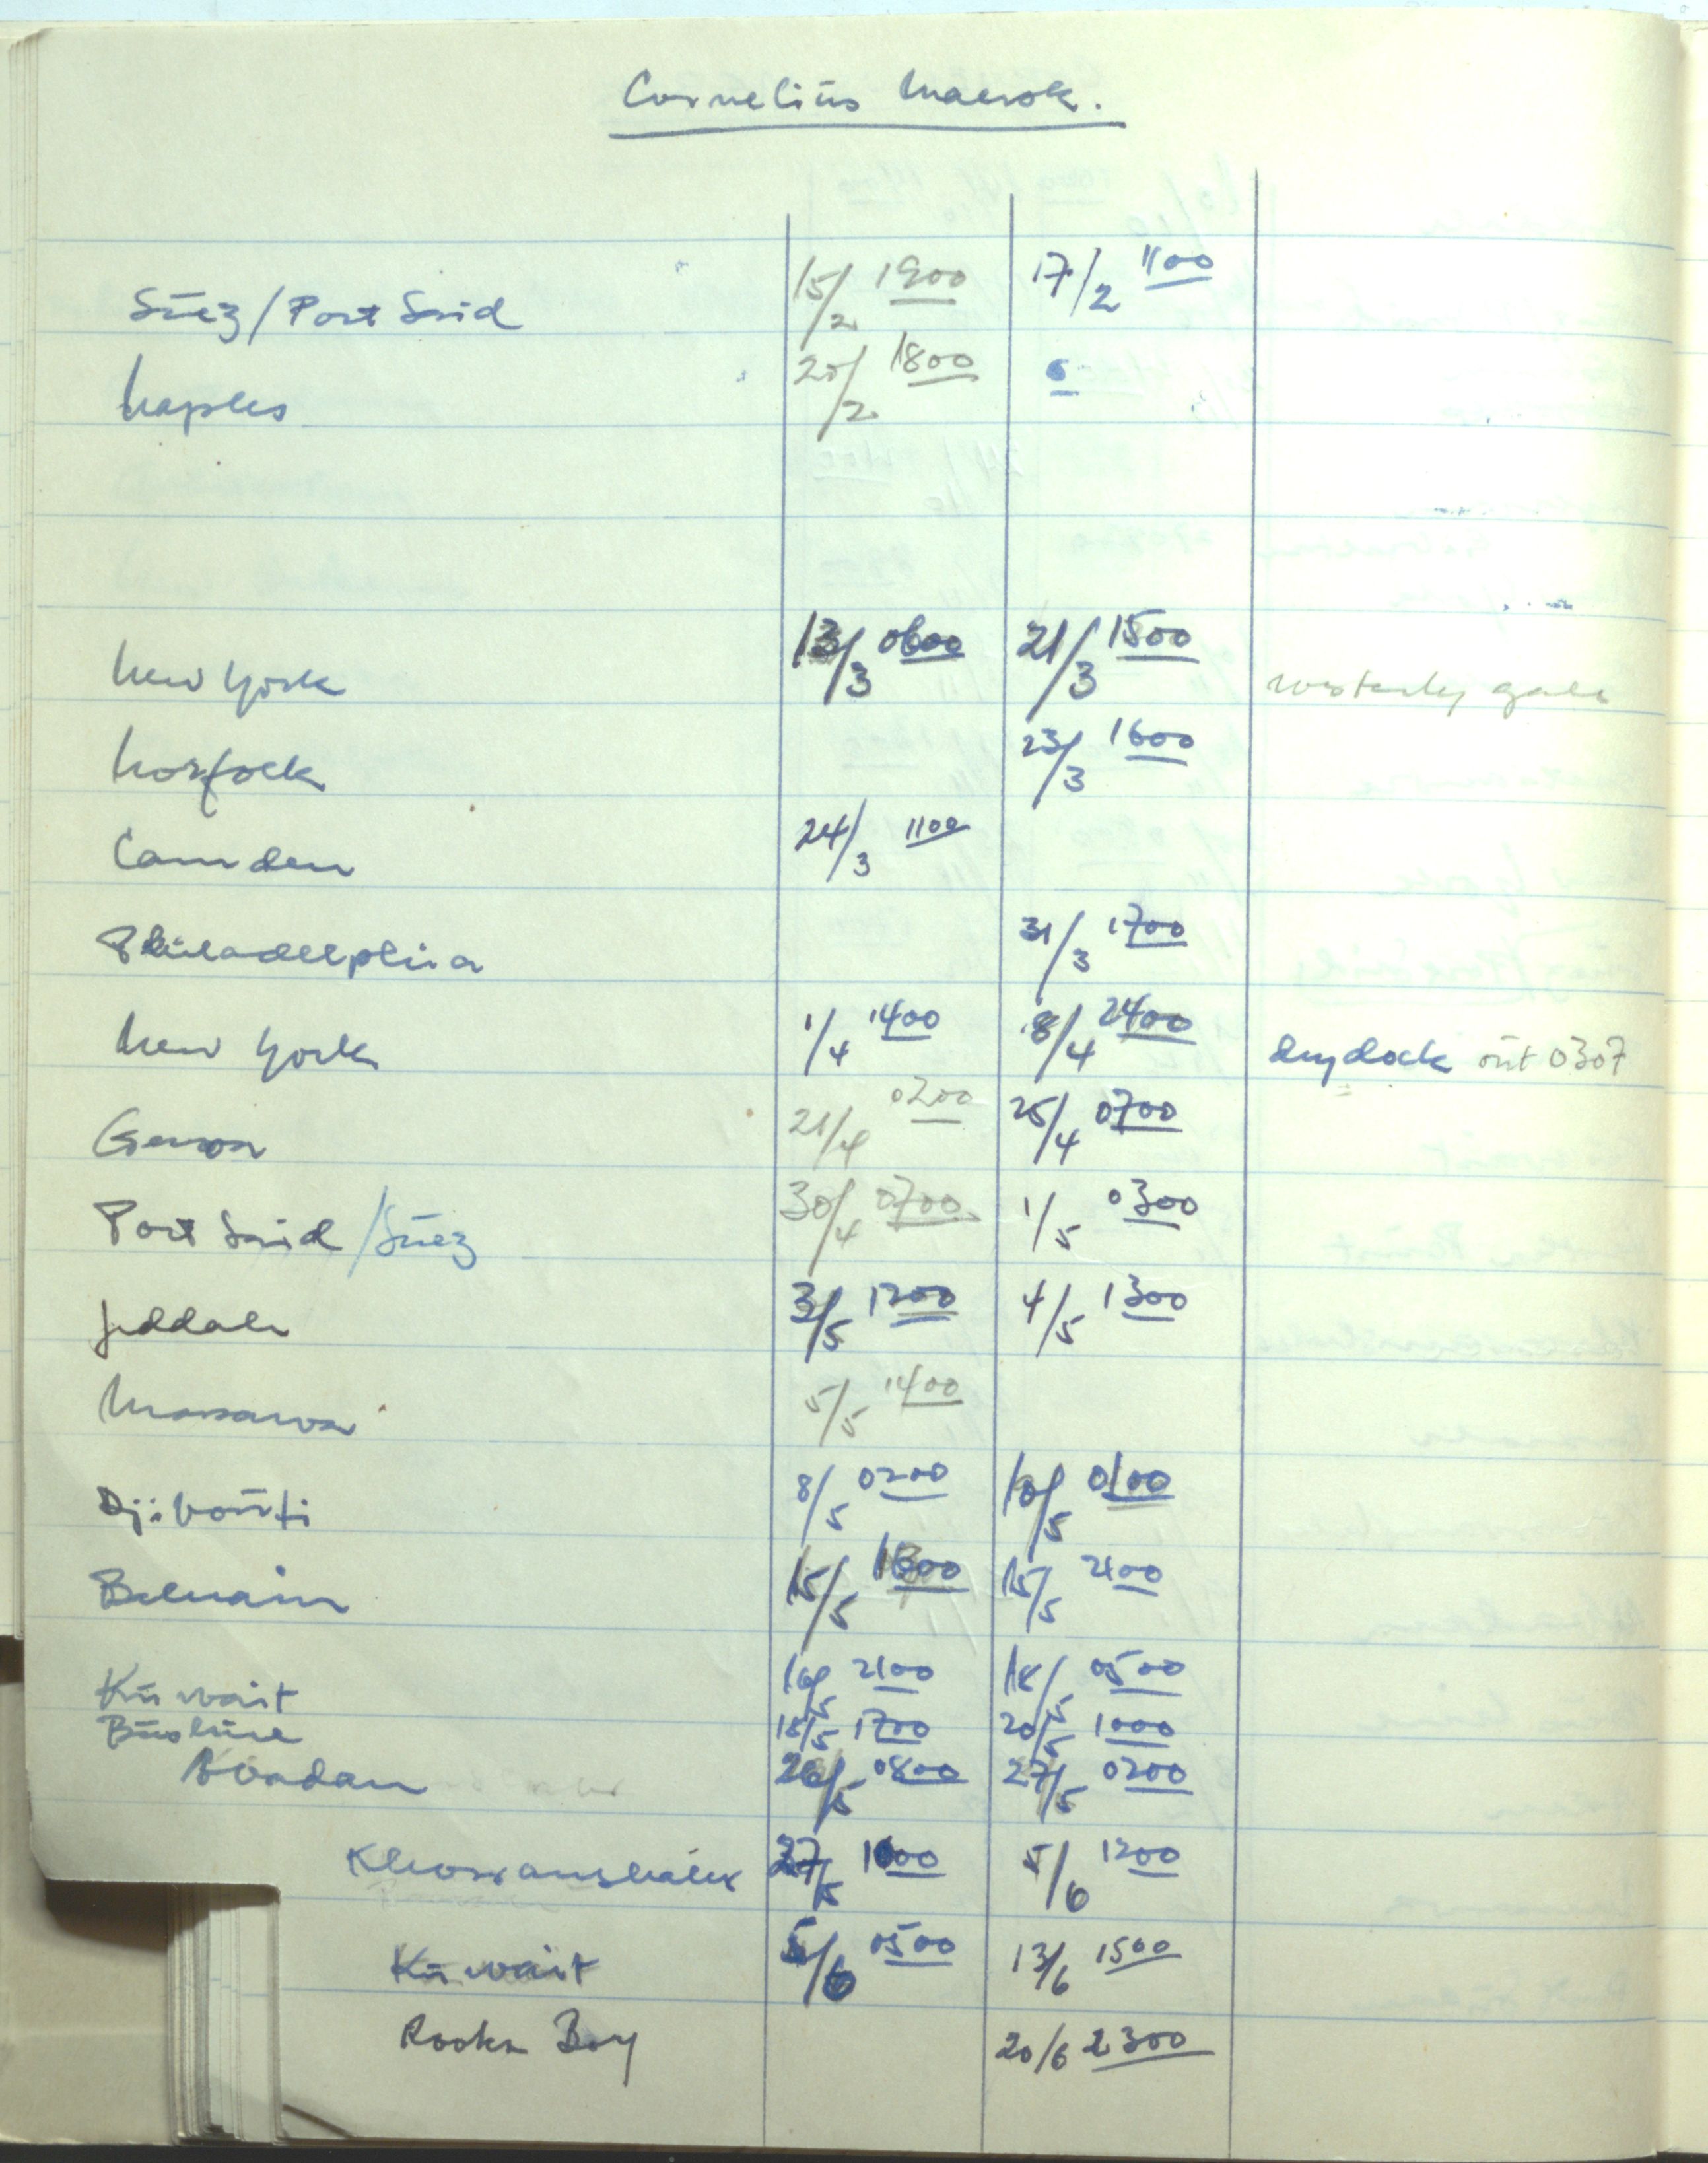 Cornelius Maersk.
Suez/Port Said 15/2 1900 17/2 1100
Naples 20/2 1800
New York 13/3 0600 21/3 1500 westerly gale
Norfolk 23/3 1600
Camden 24/3 1100
Philadelphia 31/3 1700
New York 1/4 1400 8/4 2400 drydock out 0307
Genoa 21/4 0200 25/4 0700
Port Said/Suez 30/4 0700 1/5 0300
Jeddah 3/5 1200 4/5 1300
Massawa 5/5 1400
Djibouti 8/5 0200 10/5 0100
Bahrain 15/5 15/5 2400
Kuwait 16/5 2100 18/5 0500
Bushire 18/5 1700 20/5 1000
Abadan 26/5 0800 27/5 0200
27/5 5/6 1200
Kuwait 0500 13/6 1500
Rooka Bay 20/6 2300